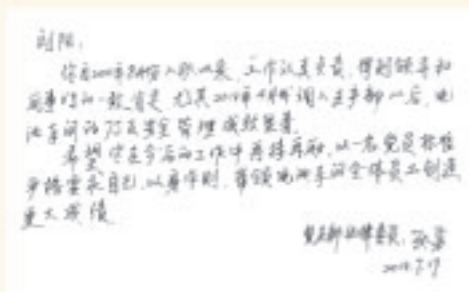 刘阳:
你自2010年8月份入职以来,工作认真负责,得到领导和
同事的一致肯定。尤其2014年4月调入生产部以后,电
池车间的7S及安全管理成效显著。
希望你在今后的工作中再接再励,以一名党员标准
严格要求自己,以身作则,带领电池车间全体员工创造
更大成绩
支部组织委员:
7.17